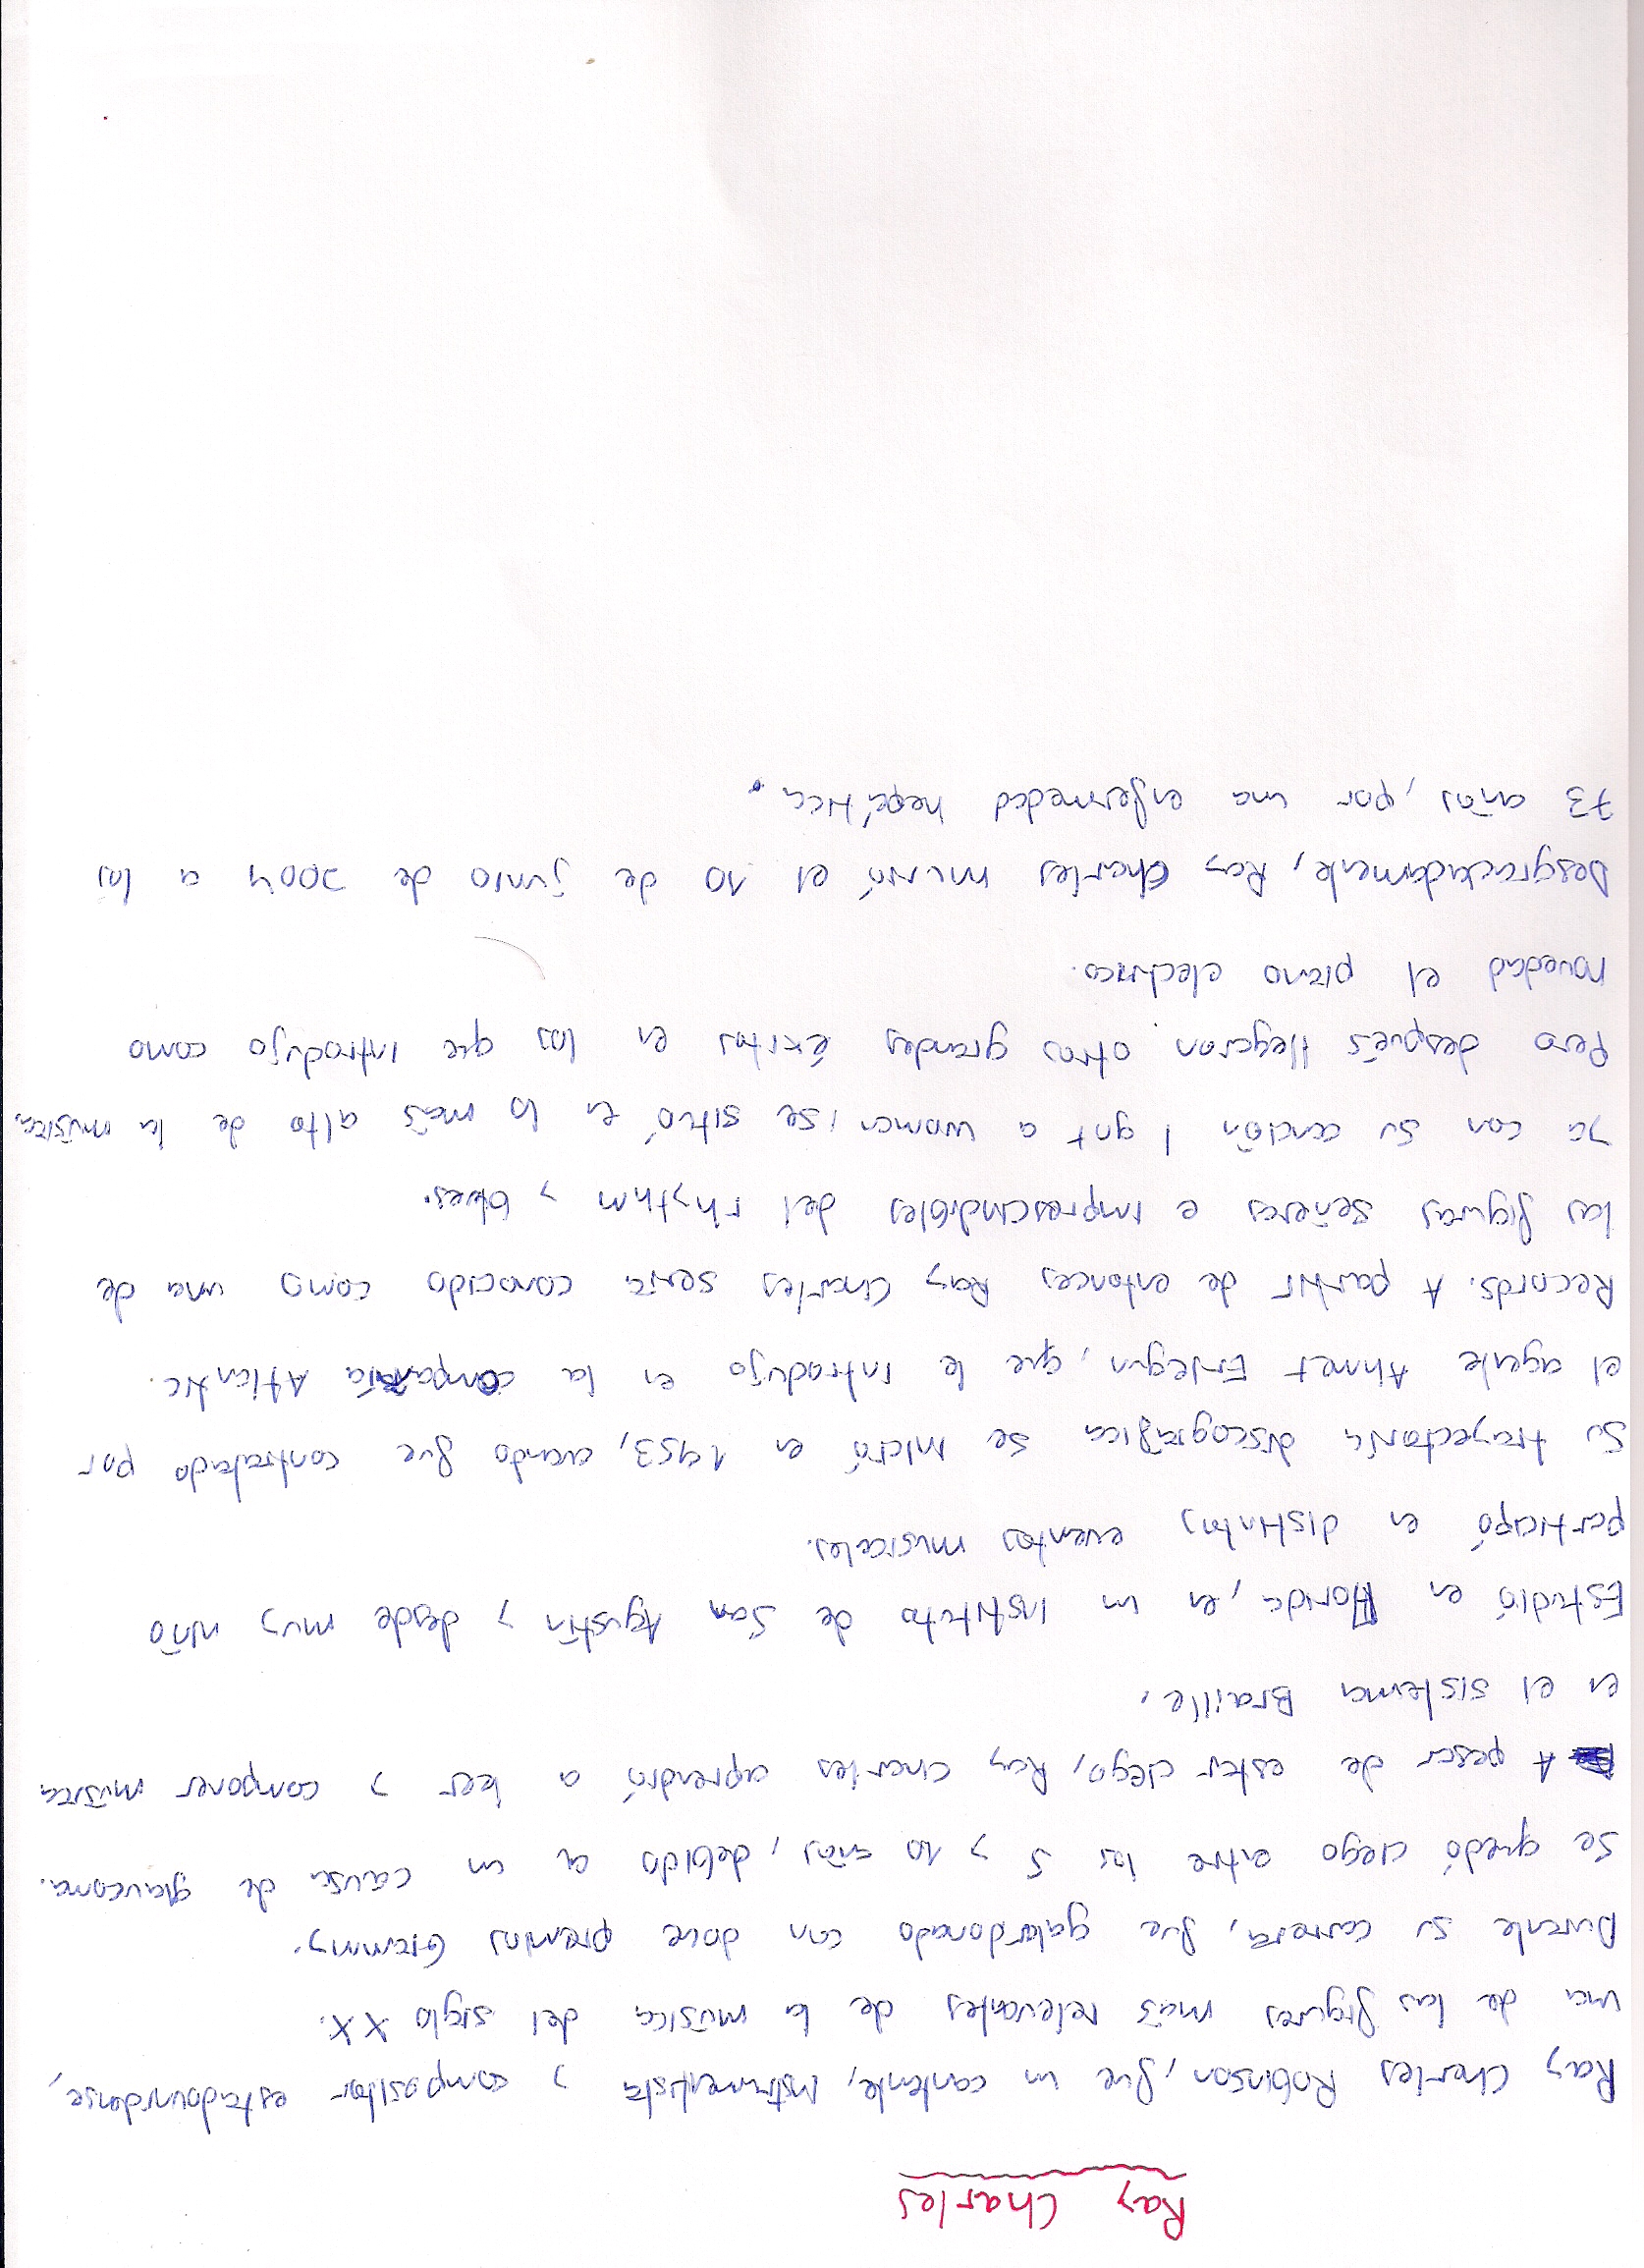 Ray Charles
Ray Charles Robinson, fue un cantante, instrumentista y compositor estadounidense,
una de las figuras más relevantes de la música del siglo XX.
Durante su carrera, fue galardonado con doce premios Grammy.
Se quedó ciego entre los 5 y 10 años, debido a un causa de glaucoma.
A pesar de estar ciego, Ray Charles aprendió a leer y componer música
en el sistema Braille.
Estudió en Florida, en un instituto de San Agustín y desde muy niño
participó en distintos eventos musicales.
Su trayectoria discográfica se inició en 1953, cuando fue contratado por
el agente Ahmet Ertegun, que le introdujo en la compañía Atlantic.
Records. A partir de entonces Ray Charles sería conocido como una de
las figuras señeras e imprescindibles del rhythm y blues.
Ya con su canción I got a woman, se situó en lo más alto de la música,
Pero después llegaron otros grandes éxitos en los que introdujo como
novedad el piano electrico.
Desgraciadamente, Ray Charles murió el 10 de junio de 2004 a los
73 años, por una enfermedad hepática.